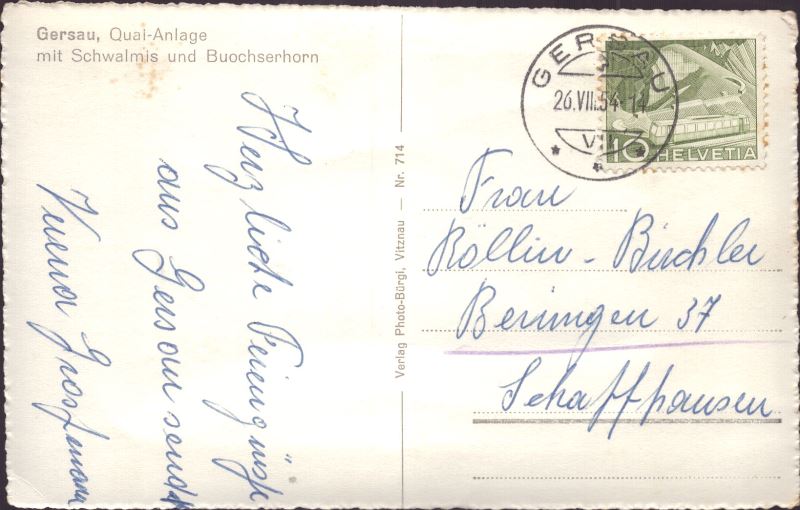 Gersau, Quai-Anlage
mit Schwalmis und Buochserhorn
Herzliche Feriengrüsse
aus Gersau sendet
Verena Grossmann
Verlag Photo-Bürgi, Vitznau — Nr. 714
GERSAU
26.VII.54-14
VII
10 HELVETIA
Frau
Röllin-Büchler
Beringen 37
Schaffhausen